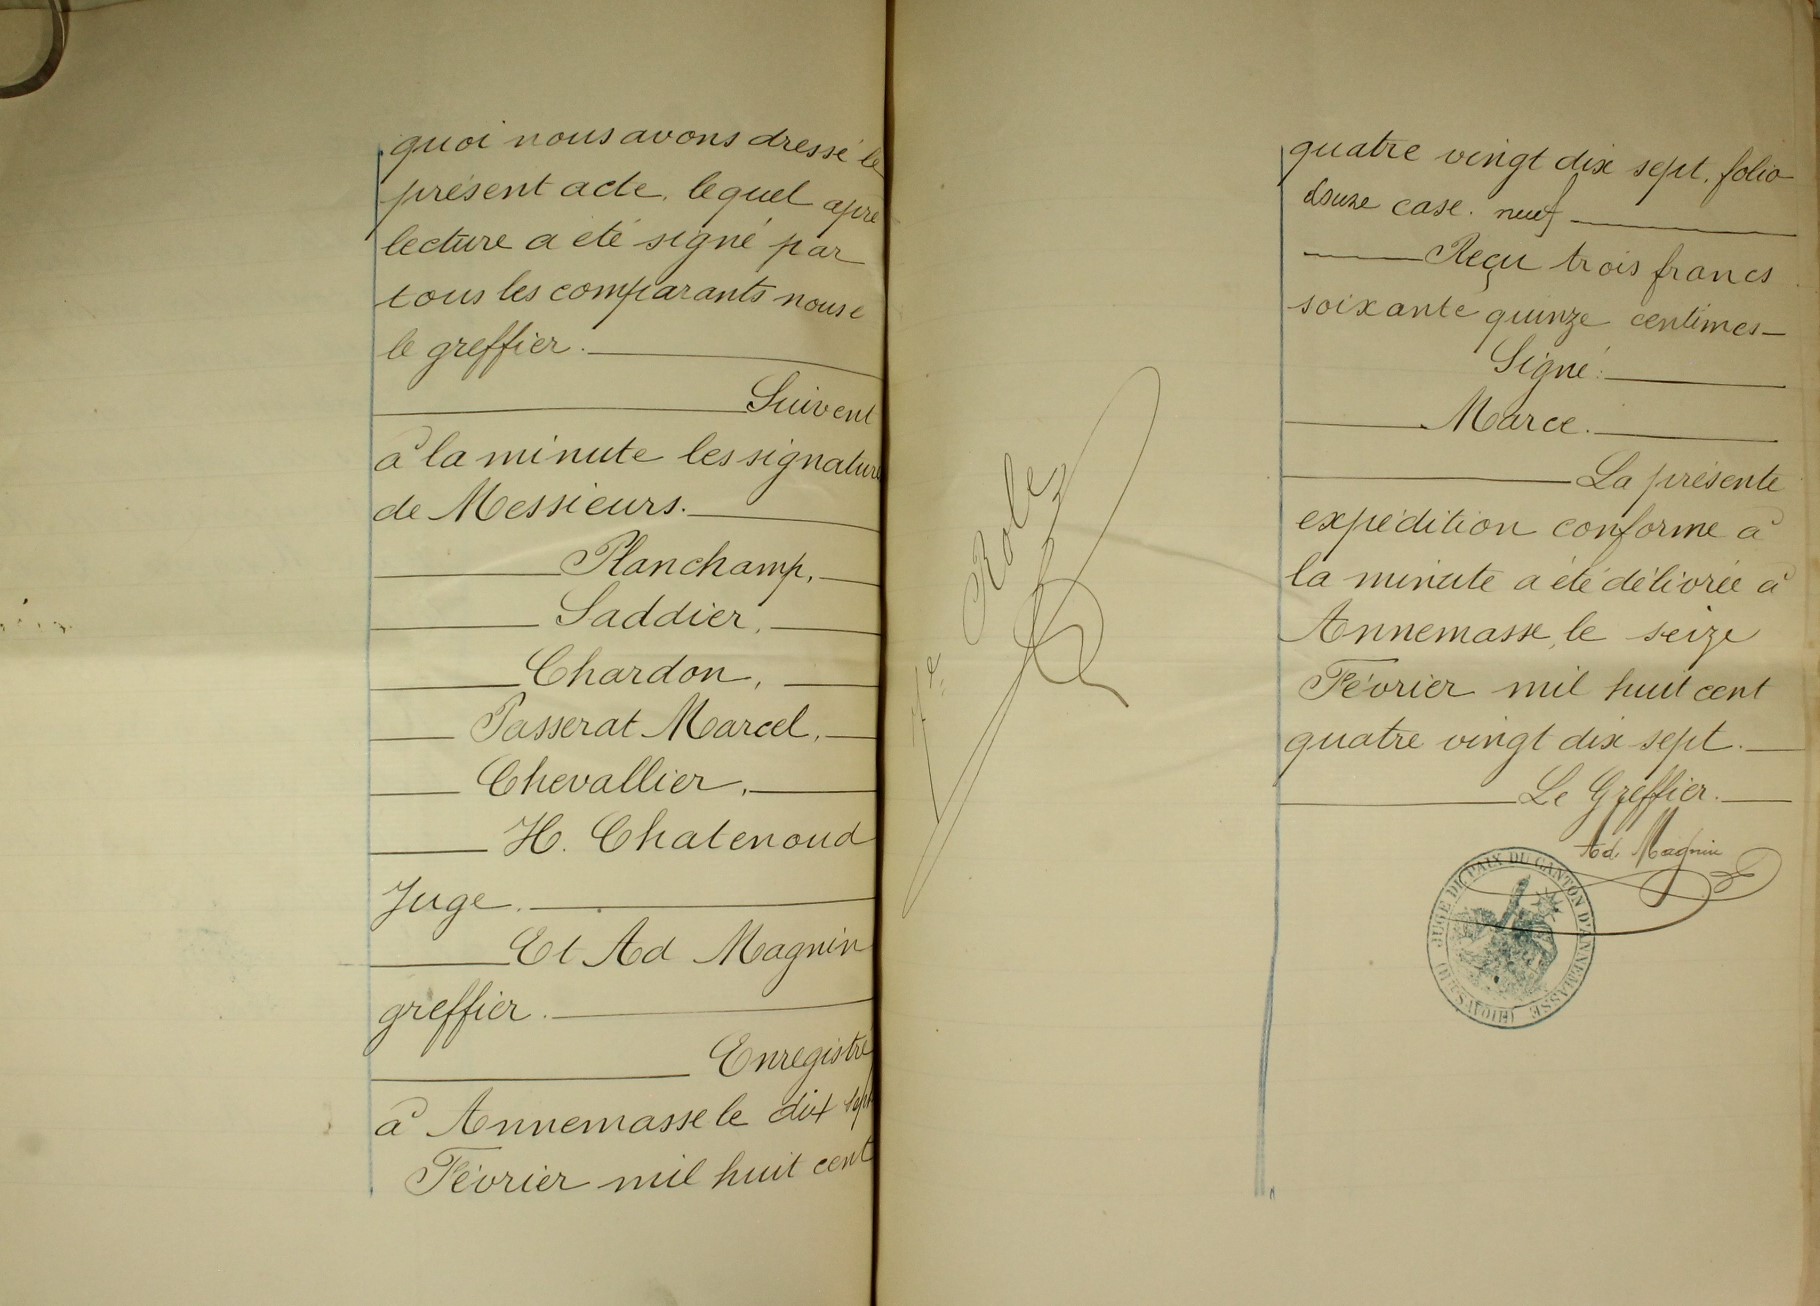 quoi nous avons dressé le
présent acte, lequel apre
lecture a été signé par
tous les comparants nous e
le greffier.
Suivent
à la minute les signature
de Messieurs.
Planchamp,
Saddier,
Chardon,
Passerat Marcel,
Chevallier,
H. Chatenoud
Juge.
Et Ad Magnin
greffier.
Enregistré
à Annemasse le dix sept
Février mil huit cent
Role
quatre vingt dix sept, folio
douze case. neuf
Reçu trois francs
soixante quinze centimes
Signé:
Marce.
La présente
expédition conforme à
la minute a été délivrée à
Annemasse, le seize
Février mil huit cent
quatre vingt dix sept.
Le Greffier.
Ad. Magnin
JUGE DE PAIX DU CANTON D'ANNEMASSE (HTE SAVOIE)